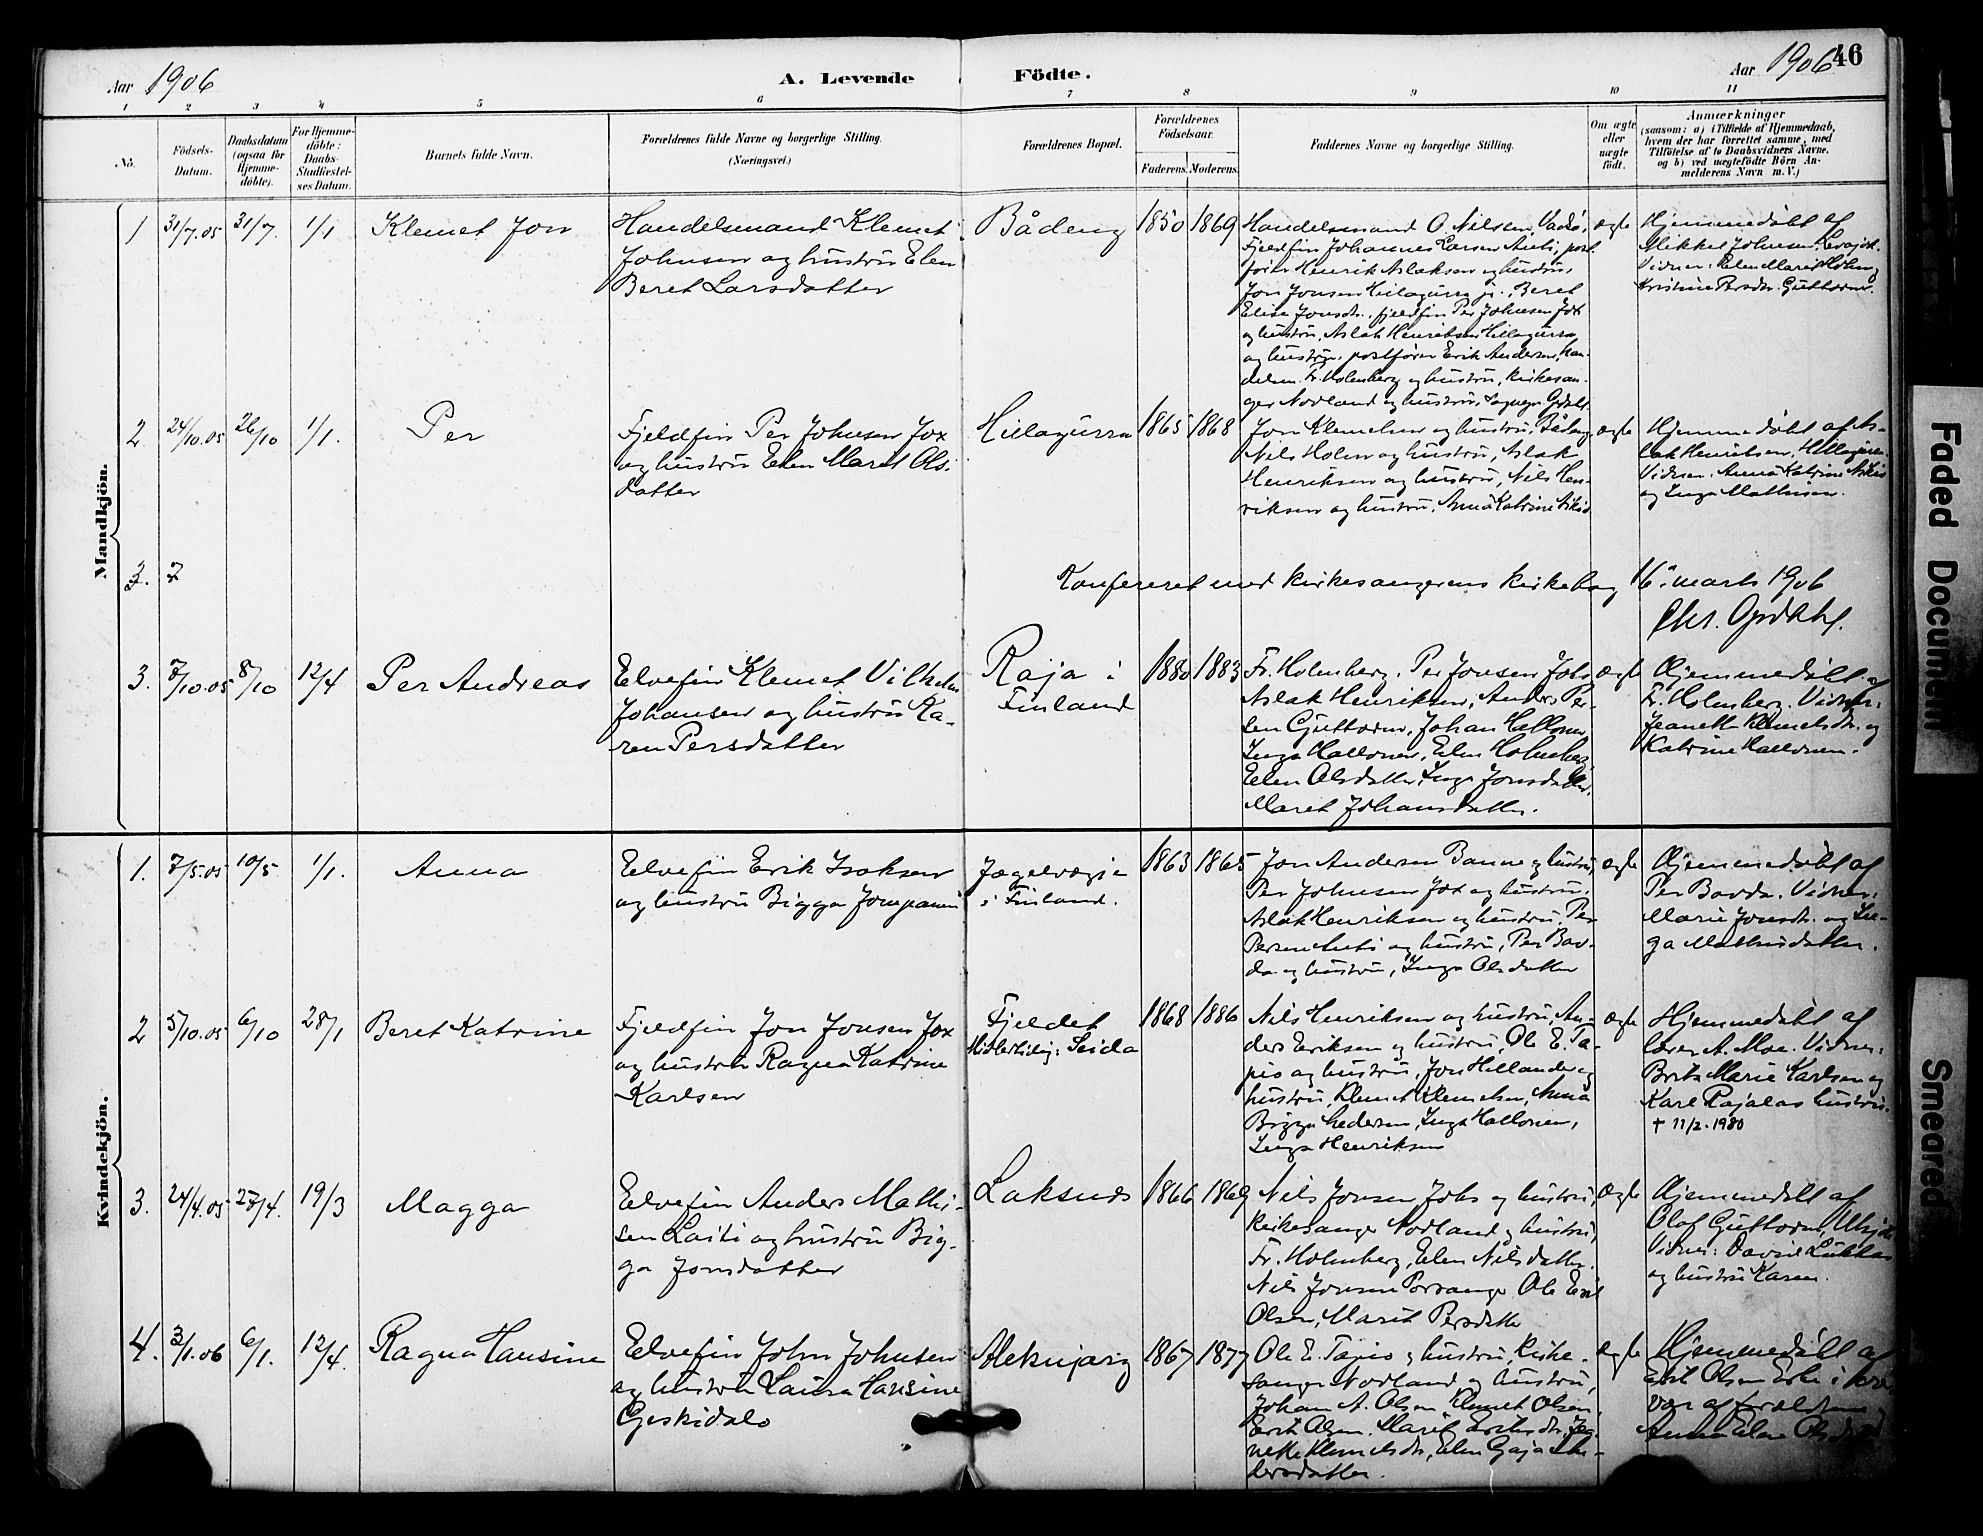 46
Aar 1906
A. Levende Födte.
Aar 1906
1 2 3 4 5 6 7 8 9 10 11
No.
Födsels-
Datum.
Daabsdatum
(ogsaa for
Hjemme-
döbte).
For Hjemme-
döbte:
Daabs-
Stadfæstel-
ses Datum.
Barnets fulde Navn.
Forældrenes fulde Navne og borgerlige Stilling.
(Næringsvei.)
Forældrenes Bopæl.
Forældrenes
Födselsaar.
Faderens. Moderens.
Faddernes Navne og borgerlige Stilling.
Om ægte
eller
uægte
födt.
Anmærkninger
(saasom: a) i Tilfælde af Hjemmedaab,
hvem der har forrettet samme, med
Tilföielse af to Daabsvidners Navne,
og b) ved uægtefödte Börn An-
melderens Navn m. V.)
Mandkjön.
1 31/7.05 31/7. 1/1 Klemet Jon
Handelsmand Klemet
Johnsen og hustru Elen
Beret Larsdatter
Bådeng 1850 1869
Handelsmand O. Nilsen, Vadsö,
Fjeldfin Johannes Larsen Anti, post-
förer Henrik Aslaksen og hustru,
Jon Jonsen Hillagurra jr., Beret
Elise Jonsdr., fjeldfin Per Johnsen Jox
og hustru, Aslak Henriksen Hillagurra
og hustru, postförer Erik Andersen, han-
delsm. Fr. Holmberg og hustru, kirkesan-
ger Nordland og hustru,
ægte
Hjemmedöbt af
Mikkel Johnsen
Vidner: Elen Marit Holm og
Kristine Persdr. Guttorm.
2. 24/10.05 26/10 1/1. Per
Fjeldfin Per Johnsen Jox
og hustru Elen Maret Ols-
datter
Hillagurra 1865 1868
Jon Klemetsen og hustru, Bådeng,
Nils Holm og hustru, Aslak
Henriksen og hustru, Nils Hen-
riksen og hustru, Anna Katrine
ægte
Hjemmedöbt af As-
lak Henriksen, Hillagurra.
Vidner: Anna Katrine
og Inga Mathisen.
3. 7
Konfereret med kirkesangerens kirkebog 16. marts 1906
Chr. Opdahl.
3. 7/10.05 8/10 12/4 Per Andreas
Elvefin Klemet Vilhelm
Johansen og hustru Ka-
ren Persdatter
Raja i
Finland
1880 1883
Fr. Holmberg, Per Jonsen Jobs,
Aslak Henriksen, Anders Per-
sen Guttorm, Johan Hallonen,
Inga Hallonen, Elen Holmberg,
Elen Olsdatter, Inga Jonsdatter,
Maret Johansdatter.
ægte
Hjemmedöbt af
Fr. Holmberg. Vidner:
Jeanette Klemetsdr. og
Katrine Hallonen.
Kvindekjön.
1. 7/5.05 10/5 1/1. Anna
Elvefin Erik Isaksen
og hustru Bigga Jompanen
Jægelvægie
i Finland.
1863 1865
Jon Andersen Banne og hustru,
Per Johnsen Jox og hustru,
Aslak Henriksen og hustru, Per
Persen Anti og hustru, Per Bav-
da og hustru, Inga Olsdatter
ægte
Hjemmedöbt af
Per Bavda. Vidner:
Marie Jonsdr. og In-
ga Mathisdatter.
2 5/10.05 6/10 28/1 Beret Katrine
Fjeldfin Jon Jonsen Jox
og hustru Ragna Katrine
Karlsen
Fjeldet
Midlertidig: Seida
1868 1886
Nils Henriksen og hustru, An-
ders Eriksen og hustru, Ole E. Ta-
pio og hustru, Jon Hellander og
hustru, Klemet Klemetsen, Anna
Bigga Pedersen, Inga Hallonen,
Inga Henriksen
ægte
Hjemmedöbt af
lærer A. Moe. Vidner:
Brita Marie Karlsen og
Karl Rajalas hustru.
† 11/2-1980
3. 24/4.05 27/4. 19/3 Magga
Elvefin Anders Mathi-
sen Laiti og hustru Big-
ga Jonsdatter
Laksnes 1866 1869
Nils Jonsen Jobs og hustru,
Kirkesanger Nordland og hustru,
Fr. Holmberg, Elen Nilsdatter,
Nils Jonsen Porsanger, Ole Erik
Olsen, Marit Persdatter
ægte
Hjemmedöbt af
Olaf Guttorm,
Vidner: David Lukkas
og hustru Karen.
4. 3/1.06 6/1. 12/4. Ragna Hansine
Elvefin John Johnsen
og hustru Laura Hansine
Gjeskidalo
Aleknjarg 1867 1877
Ole E. Tapio og hustru, Kirke-
sanger Nordland og hustru,
Johan A. Olsen, Klemet Olsen,
Erik Olsen, Marit Eriksdr., Jea-
nette Klemetsdr., Elen Gaja An-
dersdatter.
ægte
Hjemmedöbt af
Erik Olsen
vær af forældrene og
Anna Elene
Faded Document
Smeared